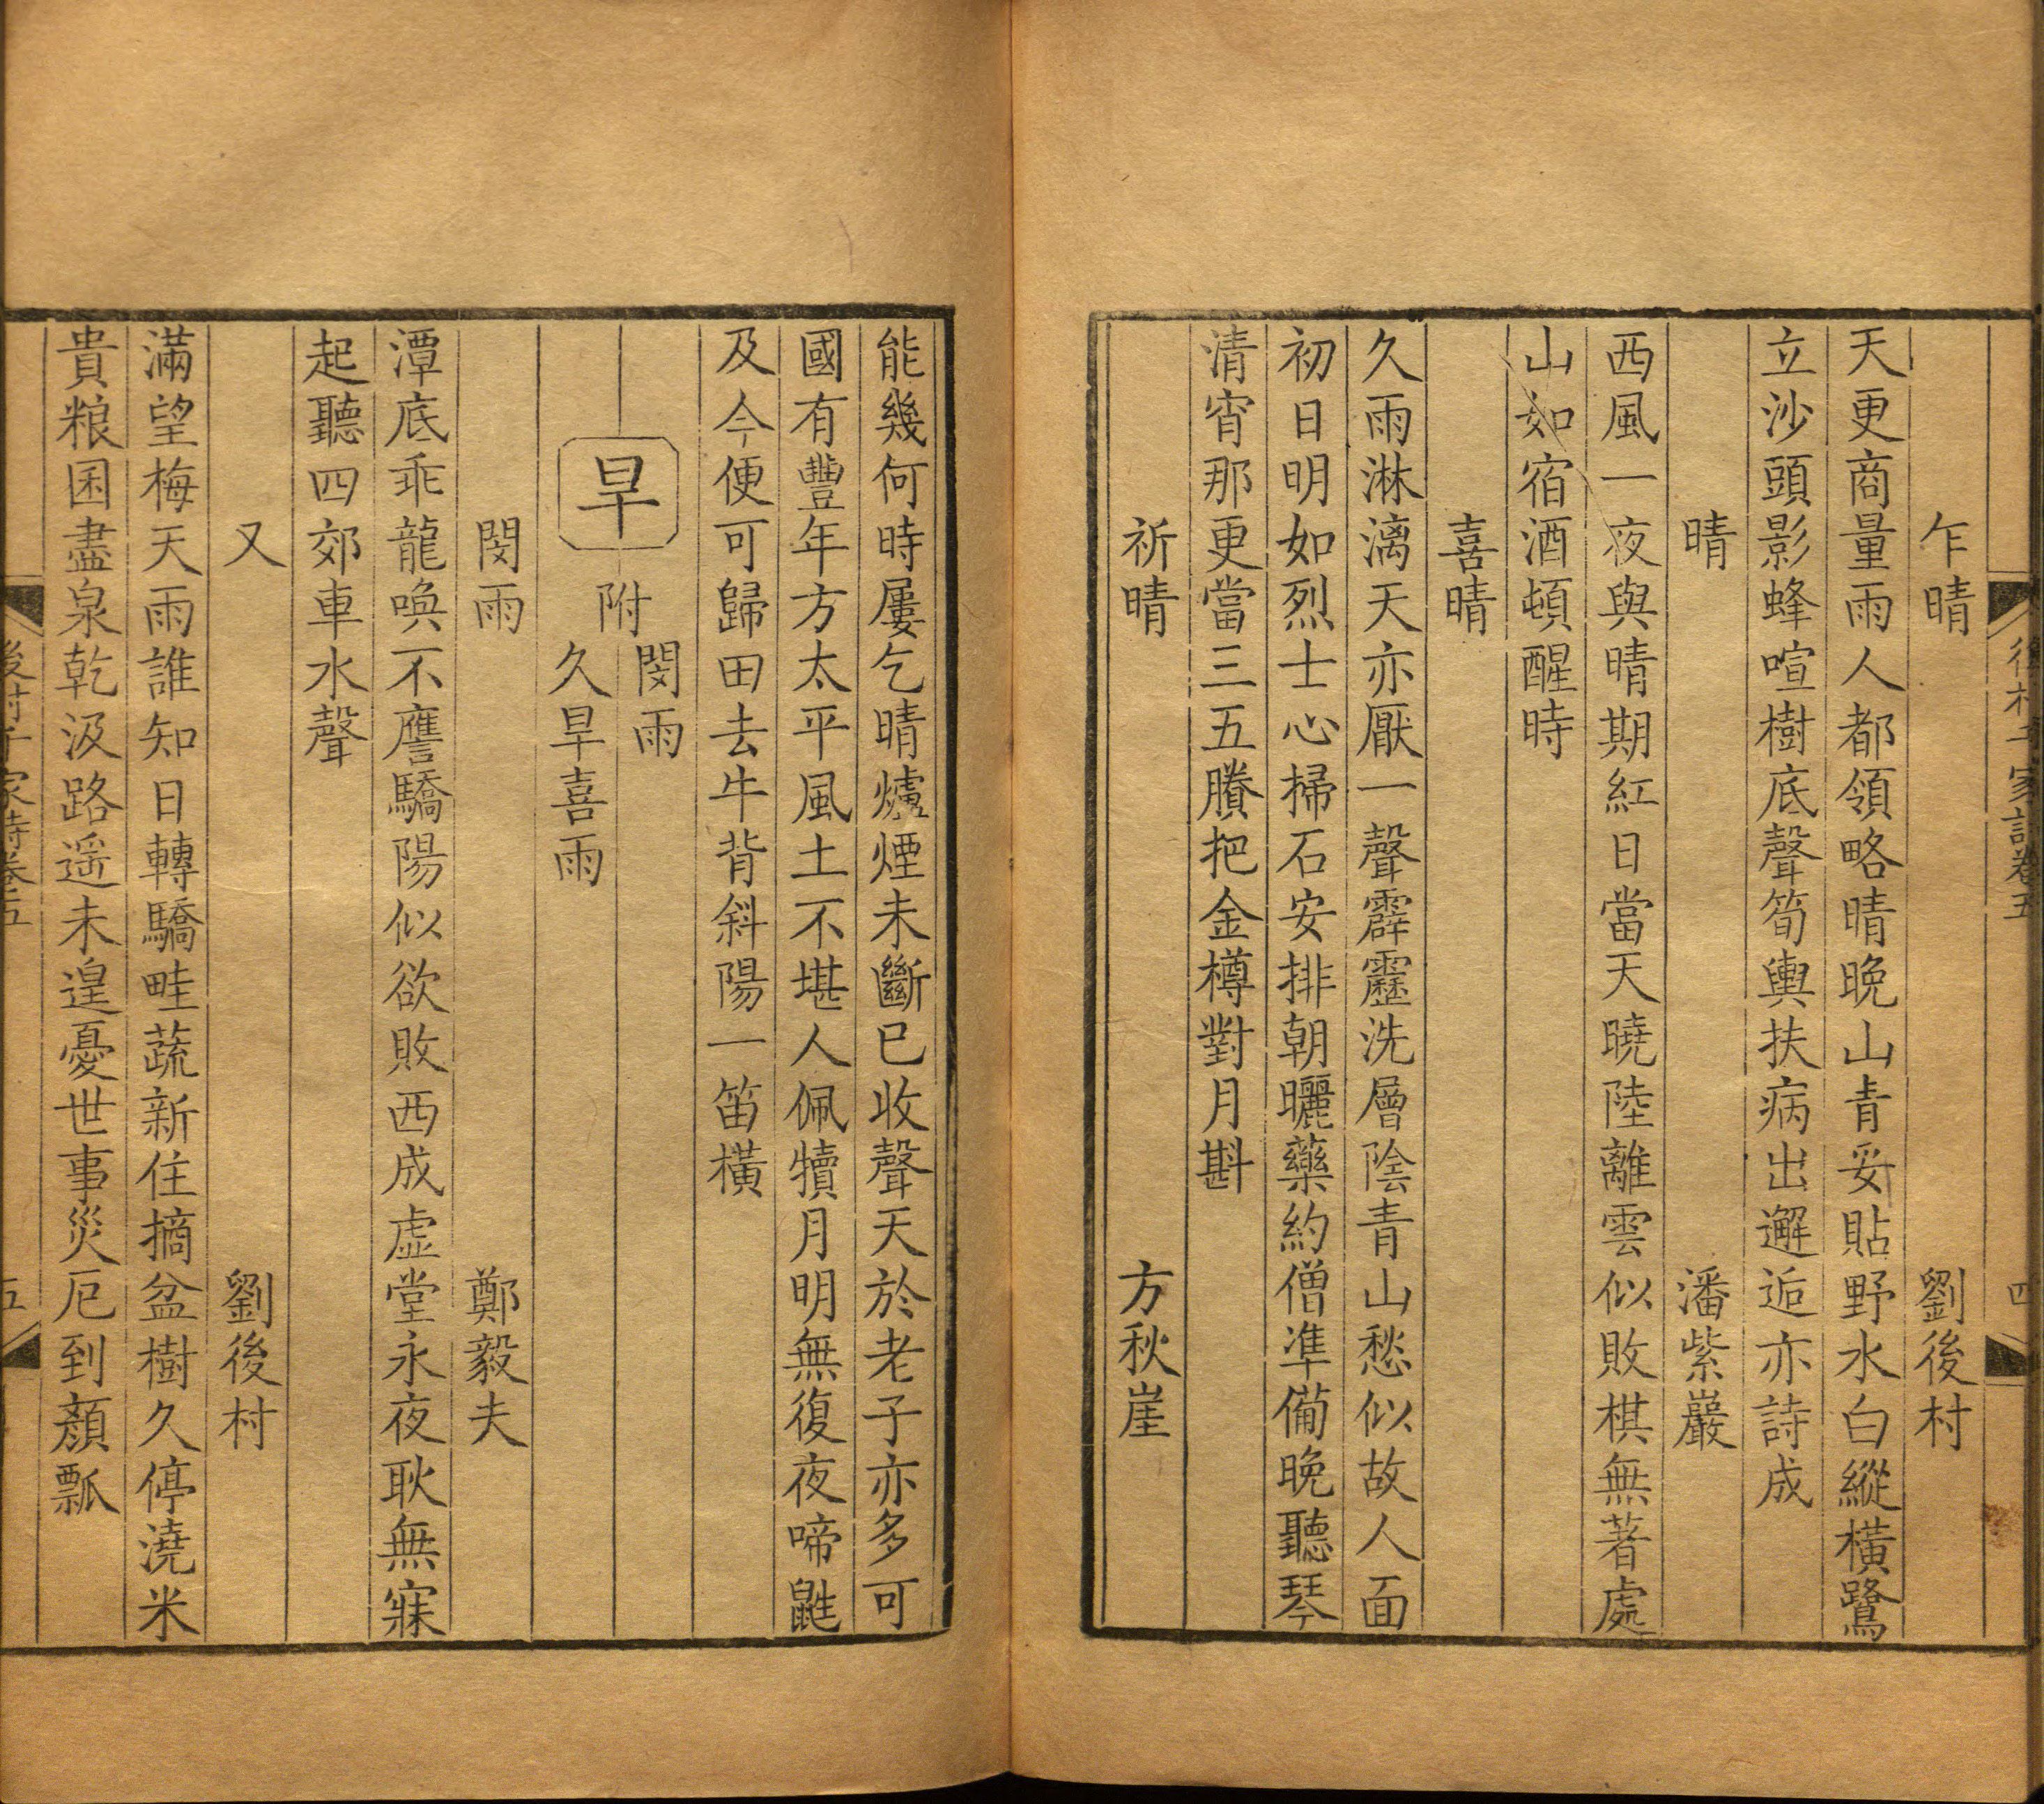 後村千家詩卷五 四
乍晴 劉後村
天更商量雨人都領略晴晩山青妥貼野水白縱橫鷺
立沙頭影蜂喧樹底聲筍輿扶病出邂逅亦詩成
晴 潘紫巖
西風一夜與晴期紅日當天曉陸離雲似敗棋無著處
山如宿酒頓醒時
喜晴
久雨淋漓天亦厭一聲霹靂洗層陰青山愁似故人面
初日明如烈士心掃石安排朝曬藥約僧準備晩聽琴
清宵那更當三五賸把金樽對月斟
祈晴 方秋崖
能幾何時屢乞晴爐煙未斷已收聲天於老子亦多可
國有豐年方太平風土不堪人佩犢月明無復夜啼鼪
及今便可歸田去牛背斜陽一笛橫
旱 附 閔雨
久旱喜雨
閔雨 鄭毅夫
潭底乖龍喚不譍驕陽似欲敗西成虛堂永夜耿無寐
起聽四郊車水聲
又 劉後村
滿望梅天雨誰知日轉驕畦蔬新住摘盆樹久停澆米
貴粮囷盡泉乾汲路遥未遑憂世事災厄到顏瓢
後村千家詩卷五 五